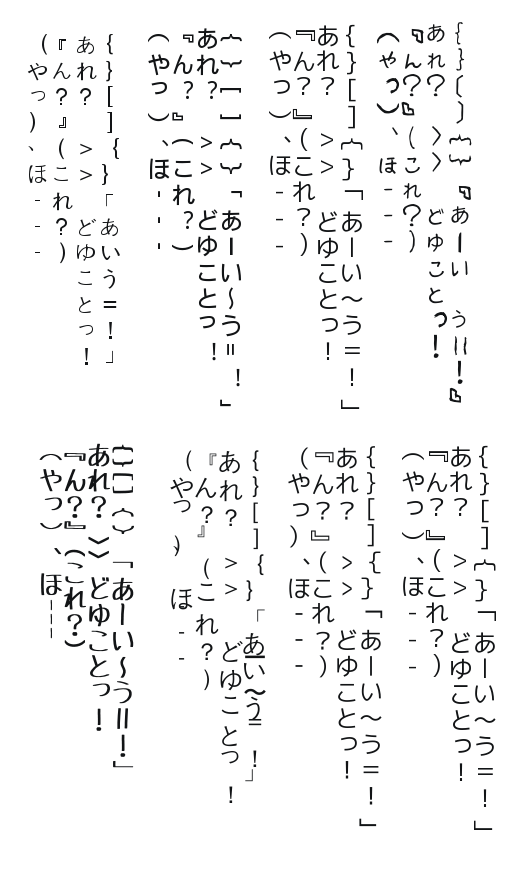 {}〔〕{}『あーい　う=！』
あれ？〉〉どゆことっ！
『ん？』(これ？)
(やっ)、ほ---
{}[]{}「あーい～う=！」
あれ？>>どゆことっ！
『ん？』(これ？)
(やっ)、ほ---
{}[]{}「あーい～う=！」
あれ？>>どゆことっ！
『ん？』(これ？)
(やっ)、ほ---
{}[]{}「あいう=！」
あれ？>>どゆことっ！
『ん？』(これ？)
(やっ)、ほ---
{}[]{}「あーい～う=！」
あれ？>>どゆことっ！
『ん？』(これ？)
(やっ)、ほ---
{}[]{}「あーい～う=！」
あれ？>>どゆことっ！
『ん？』(これ？)
(やっ)、ほ---
{}[]{}「あーい～う=！」
あれ？>>どゆことっ！
『ん？』(これ？)
(やっ)、ほ--
{}[]{}「あーい～う=！」
あれ？》どゆことっ！
『ん？』(これ？)
(やっ)、ほ---